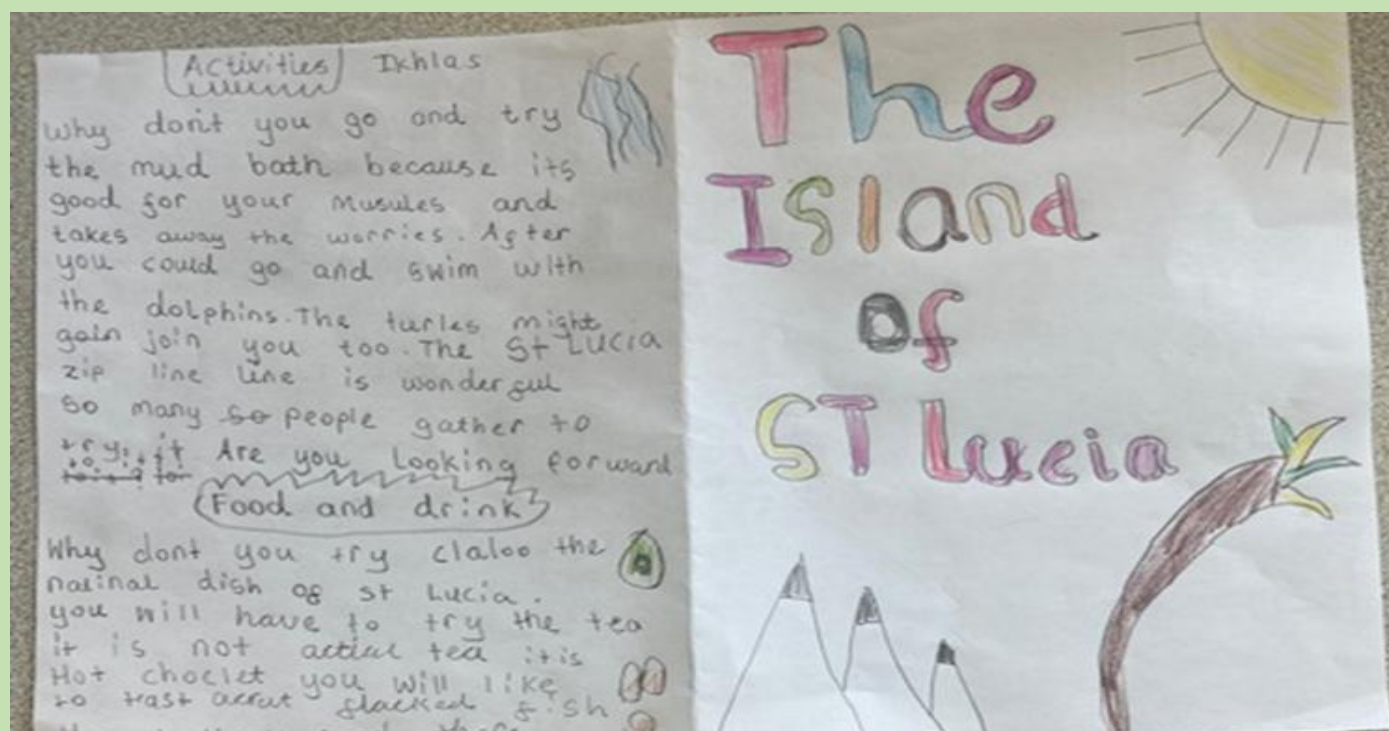 Activities Ikhlas
Why don't you go and try
the mud bath because its
good for your musules and
takes away the worries. After
you could go and swim with
the dolphins. The turles might
gain join you too. The St Lucia
zip line line is wonderful
so many so people gather to
try it Are you looking forward
Food and drink
Why dont you try claloo the
natinal dish of st Lucia.
you will have to try the tea
it is not actiul tea it is
Hot choclet you will like
to flacked fish
The
Island
of
ST Lucia